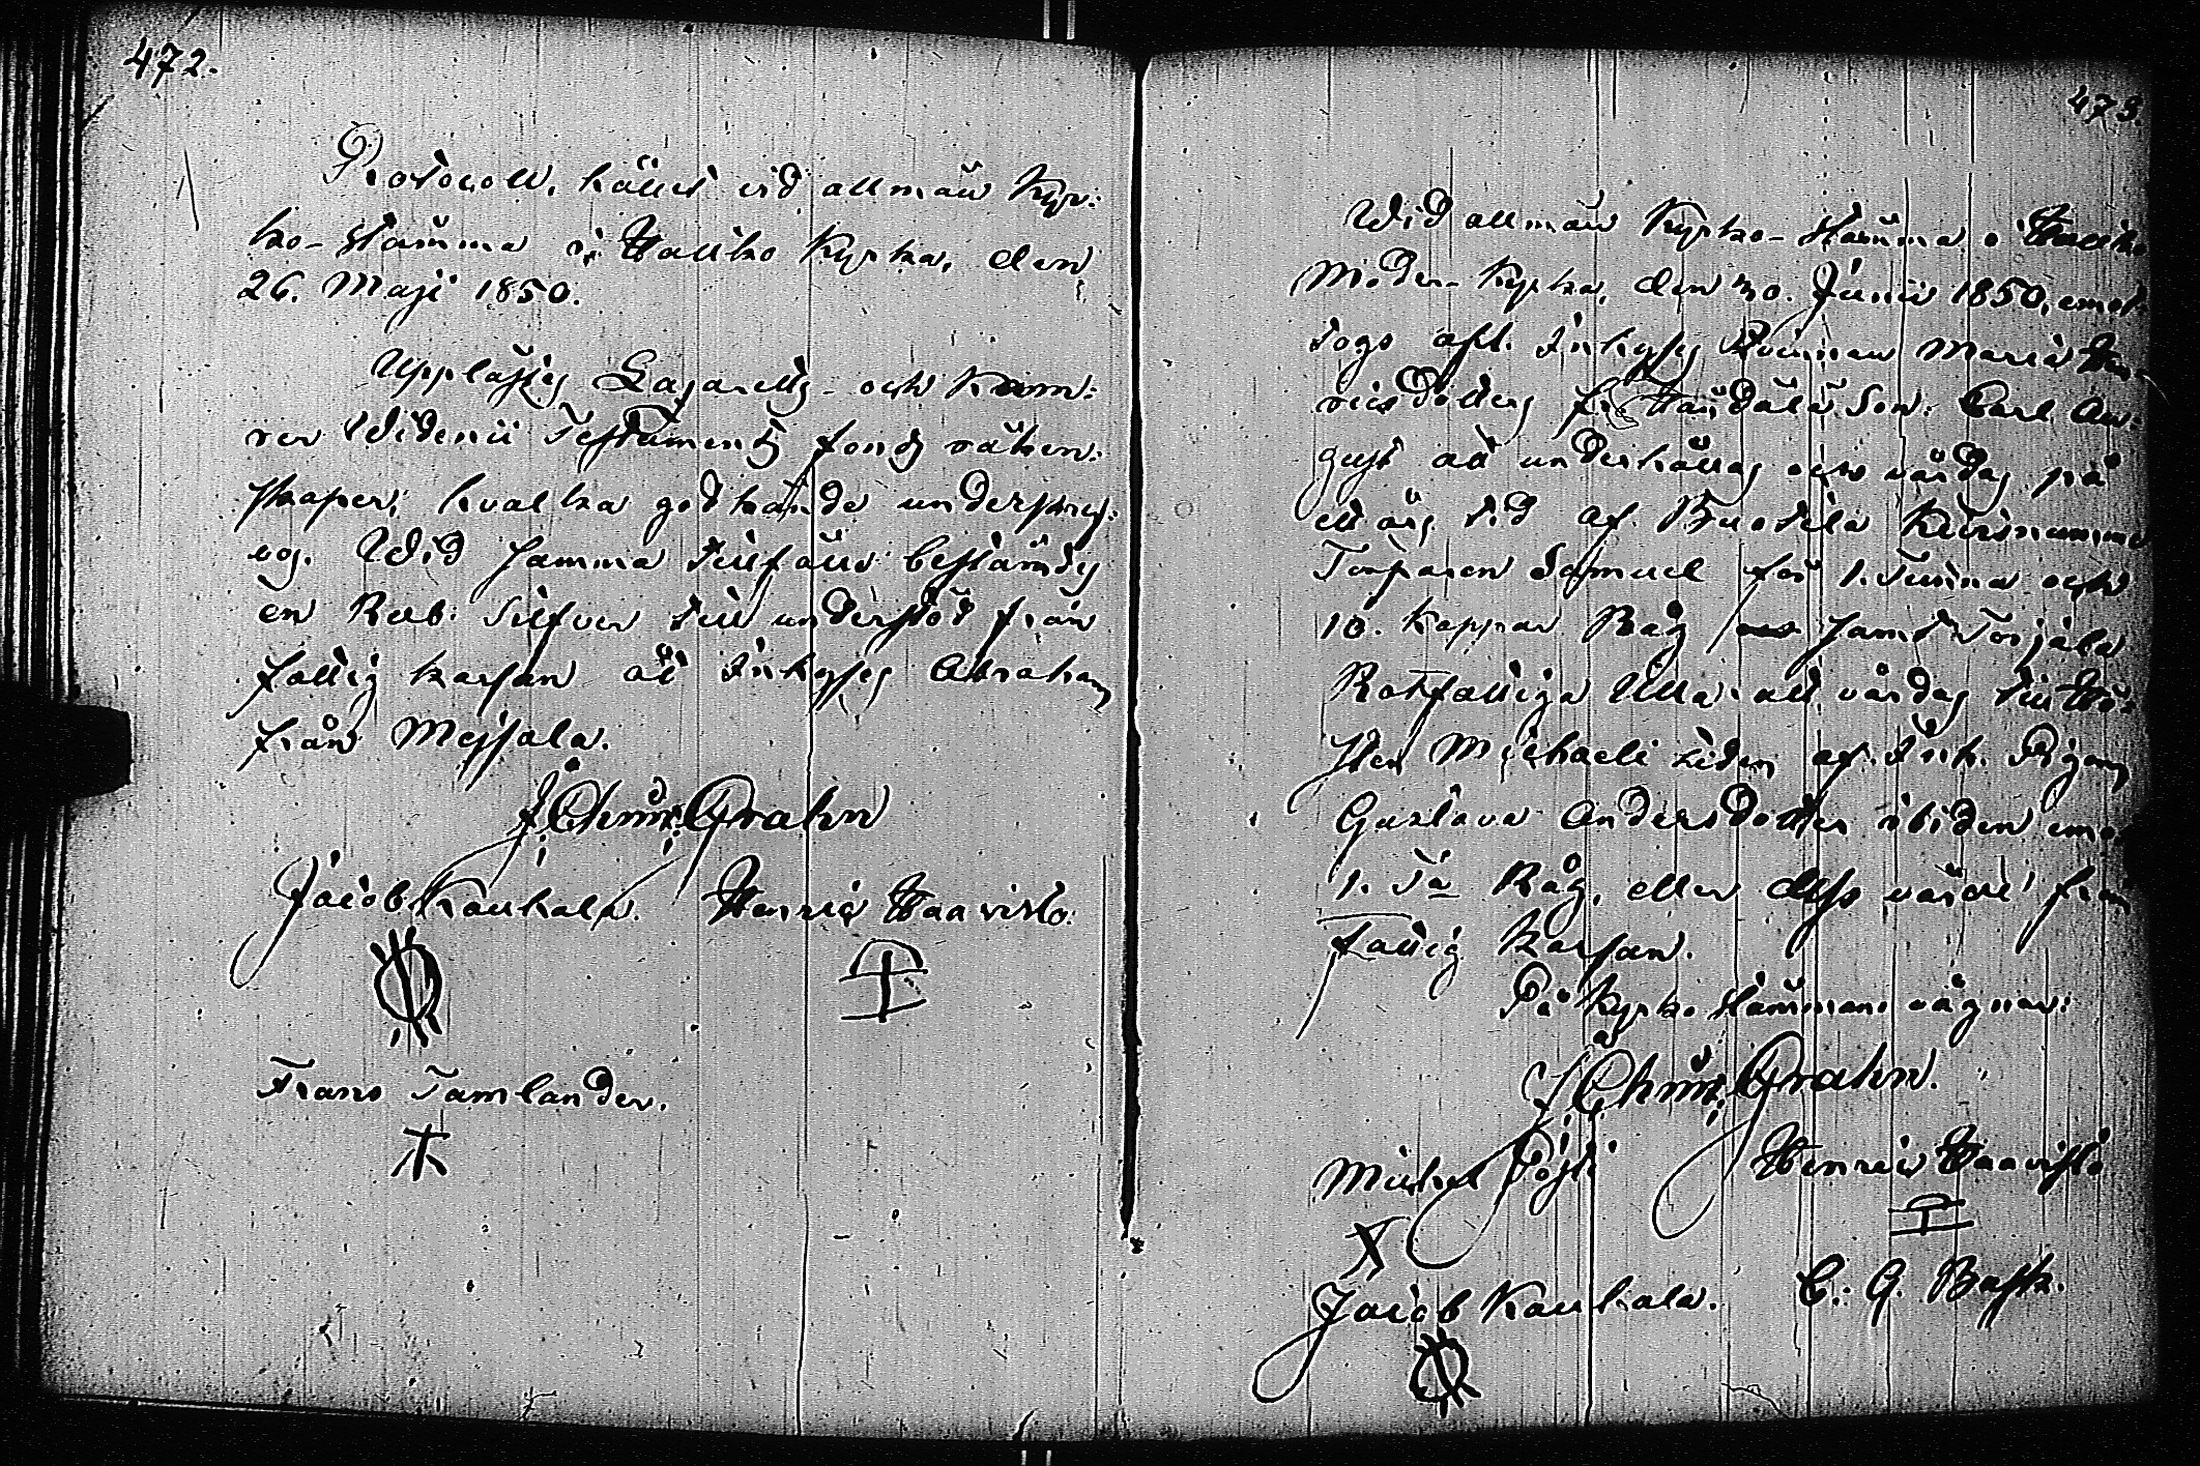 472.
Protocoll, hållet vid allmän Kyr:
ko-stämma i Halikko Kyrka, den
26. Maji 1850.
Upplästes Lazaretts- och Kam:
rer Widenii Testaments fonds räken:
skaper, hvilka godkände underskref:
vos. Wid samma tillfälle bestämdes
en Rub: Silfver till understöd från
fattig kassan åt Inhyses Abraham
från Meisala.
J. Chr: Grahn
Jacob Kaukala. Henric Haavisto.
Frans Tamlander.
473.
Wid allmän Kyrko-stämma i Halikko
Moder-Kyrka, den 30. Junii 1850, emot
togs afl. Inhyses Qvinnan Maria Hen-
ricsdotters fr. Son: Carl Au:
gust att underhållas och vårdas på
ett års tid af
Torparen Samuel för 1. Tunna och
10. kappar Råg samt
Rotfattiga Ulla att vårdas till
sten Michaeli tiden af Inh. Pigan
Gustava Andersdotter emot
1. Ta Råg, eller dess värde från
fattig kassan.
På Kyrko stämmans vägnar:
J. Chr: Grahn.
Michel Henric Haavisto
Jacob Kaukala. C. G. Bask.